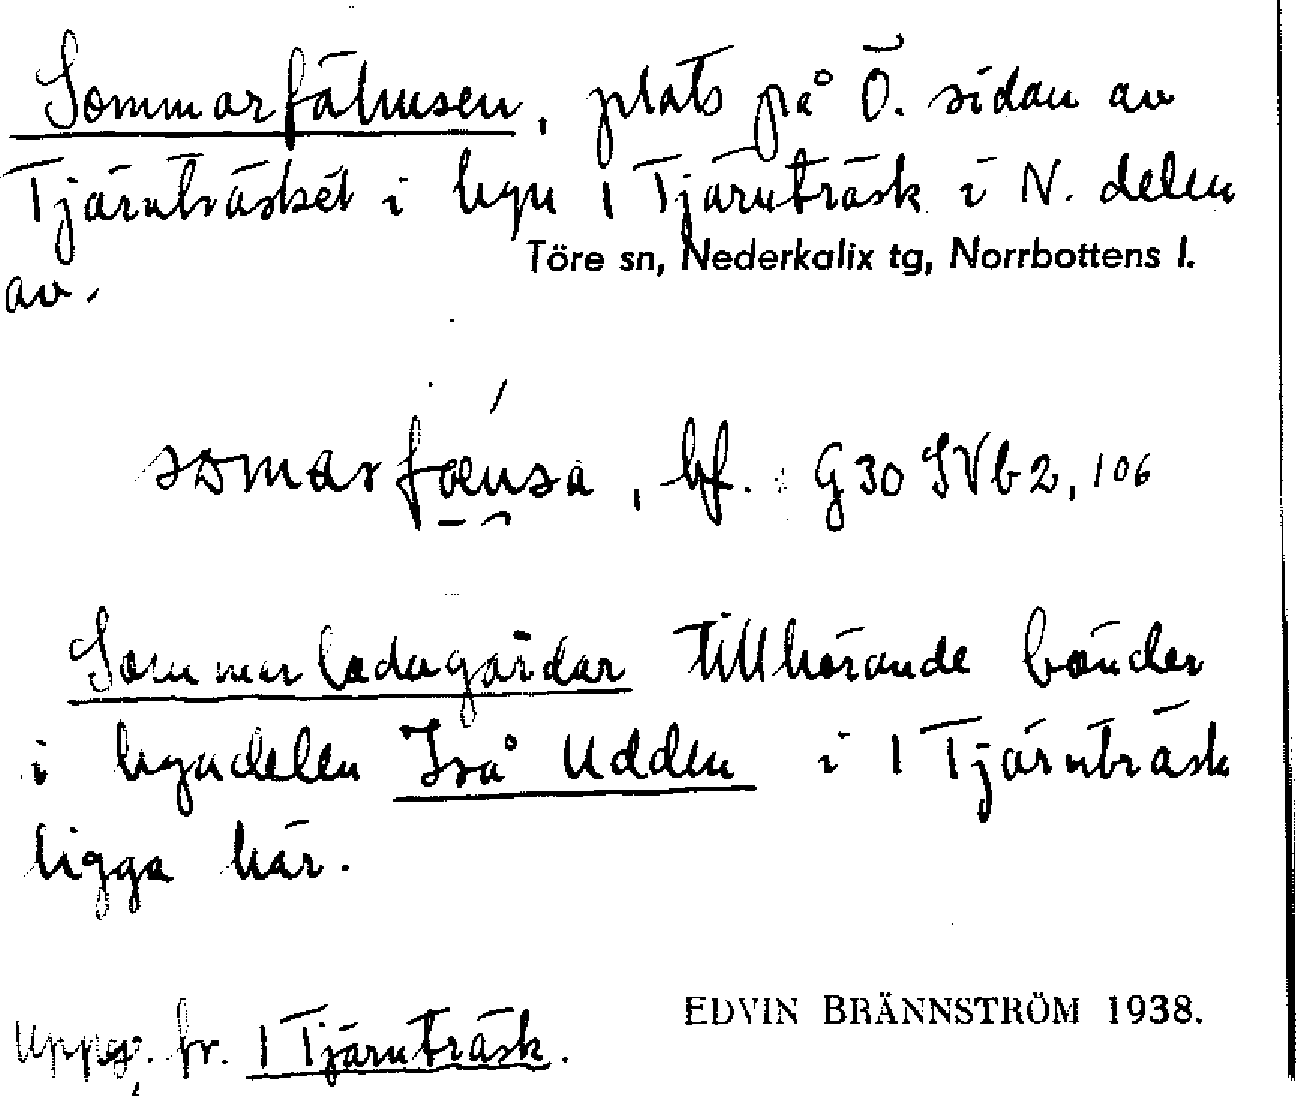 Sommarfähusen, plats på Ö. sidan av
Tjärnträsket i byn 1 Tjärnträsk i N. delen
Töre sn, Nederkalix tg, Norrbottens l.
av.
somarfæusa, bf. : G30 SVb2, 106
Sommarladugårdar tillhörande bönder
i byadelen Isvå Udden i 1 Tjärnträsk
ligga här.
EDVIN BRÄNNSTRÖM 1938.
Uppg. fr. 1 Tjärnträsk.